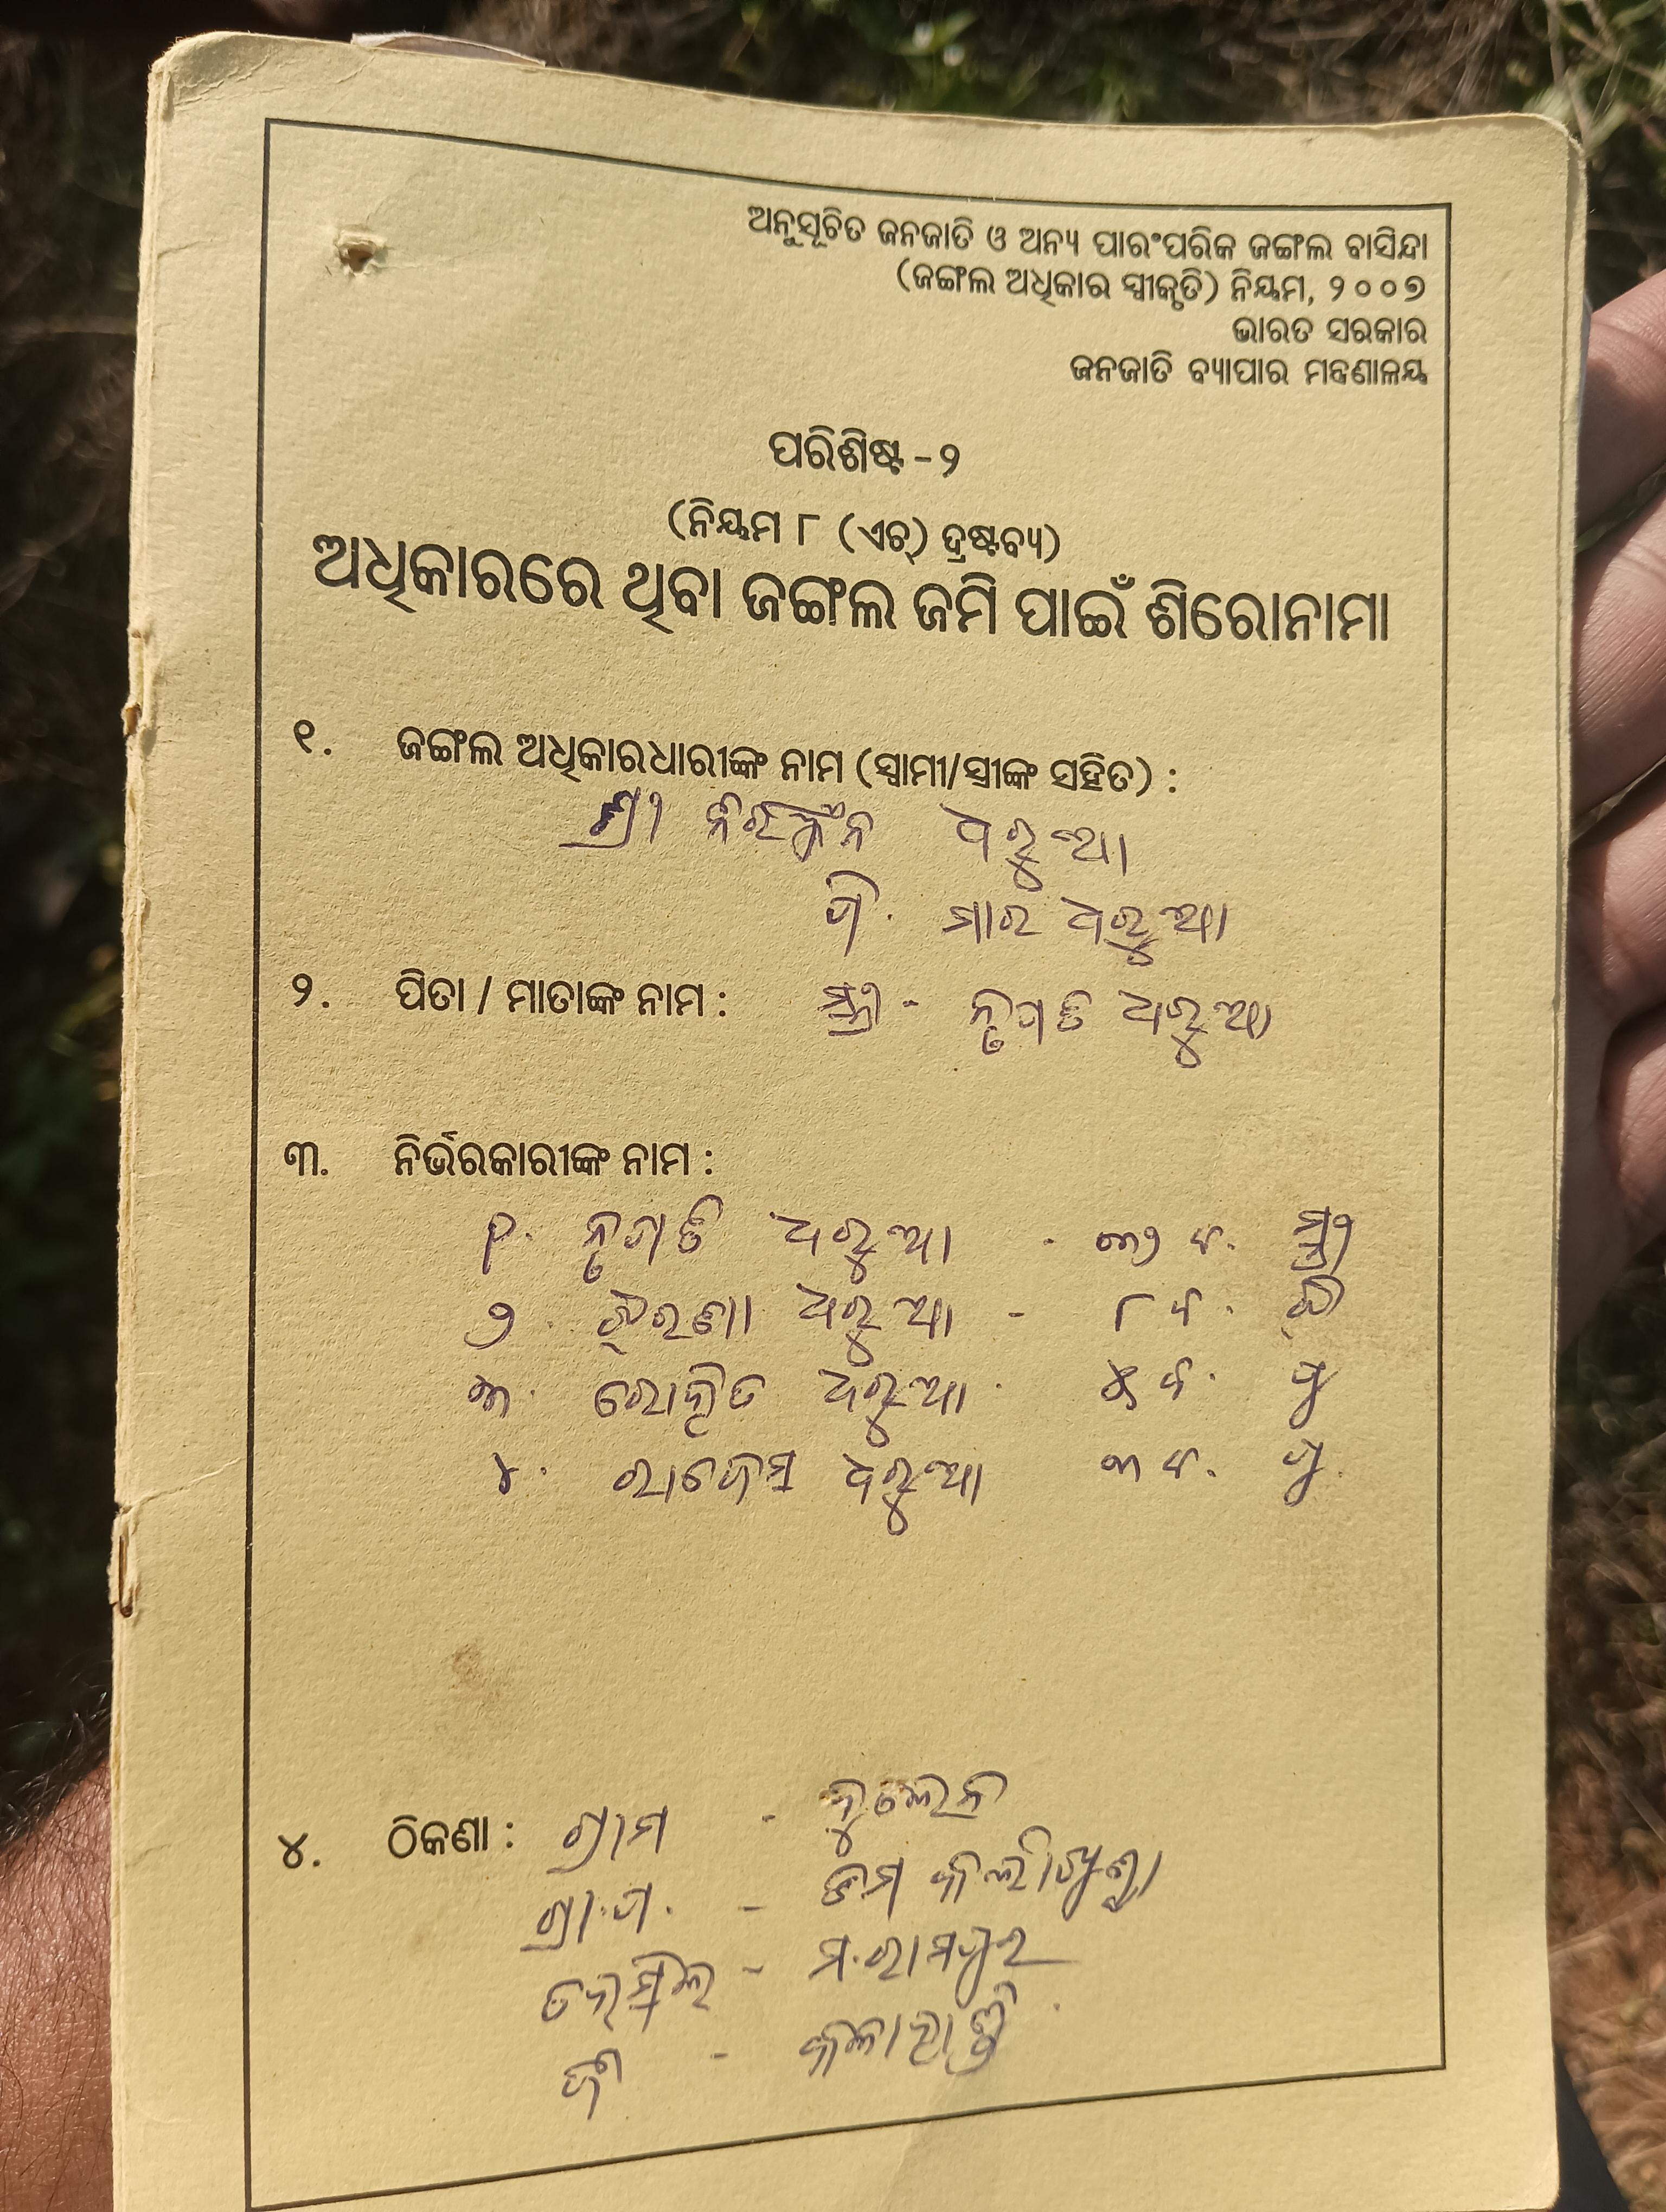 ଅନୁସୂଚିତ ଜନଜାତି ଓ ଅନ୍ୟ ପାରଂପରିକ ଜଙ୍ଗଲ ବାସିନ୍ଦା
(ଜଙ୍ଗଲ ଅଧିକାର ସ୍ୱୀକୃତି) ନିୟମ, ୨୦୦୭
ଭାରତ ସରକାର
ଜନଜାତି ବ୍ୟାପାର ମନ୍ତ୍ରଣାଳୟ
ପରିଶିଷ୍ଟ - ୨
(ନିୟମ ୮ (ଏଚ୍) ଦ୍ରଷ୍ଟବ୍ୟ)
ଅଧିକାରରେ ଥିବା ଜଙ୍ଗଲ ଜମି ପାଇଁ ଶିରୋନାମା
୧. ଜଙ୍ଗଲ ଅଧିକାରଧାରୀଙ୍କ ନାମ (ସ୍ୱାମୀ/ସ୍ତ୍ରୀଙ୍କ ସହିତ) :
ଶ୍ରୀ ଧରୁଆ
ପି. ମାର ଧରୁଆ
୨. ପିତା / ମାତାଙ୍କ ନାମ : ସ୍ତ୍ରୀ - ଧରୁଆ
୩. ନିର୍ଭରକାରୀଙ୍କ ନାମ :
୧. ଧରୁଆ - ୩୨ ବ. ସ୍ତ୍ରୀ
୨. ଧରୁଆ - ୮ ବ. ଝି
୩. ରୋହିତ ଧରୁଆ ୫ ବ. ପୁ
୪. ରାଜେସ ଧରୁଆ ୩ ବ. ପୁ.
୪. ଠିକଣା : ଗ୍ରାମ -
ଗ୍ରା.ପ. -
ତହସିଲ - ମ.ରାମପୁର
ଜି - କଳାହାଣ୍ଡି